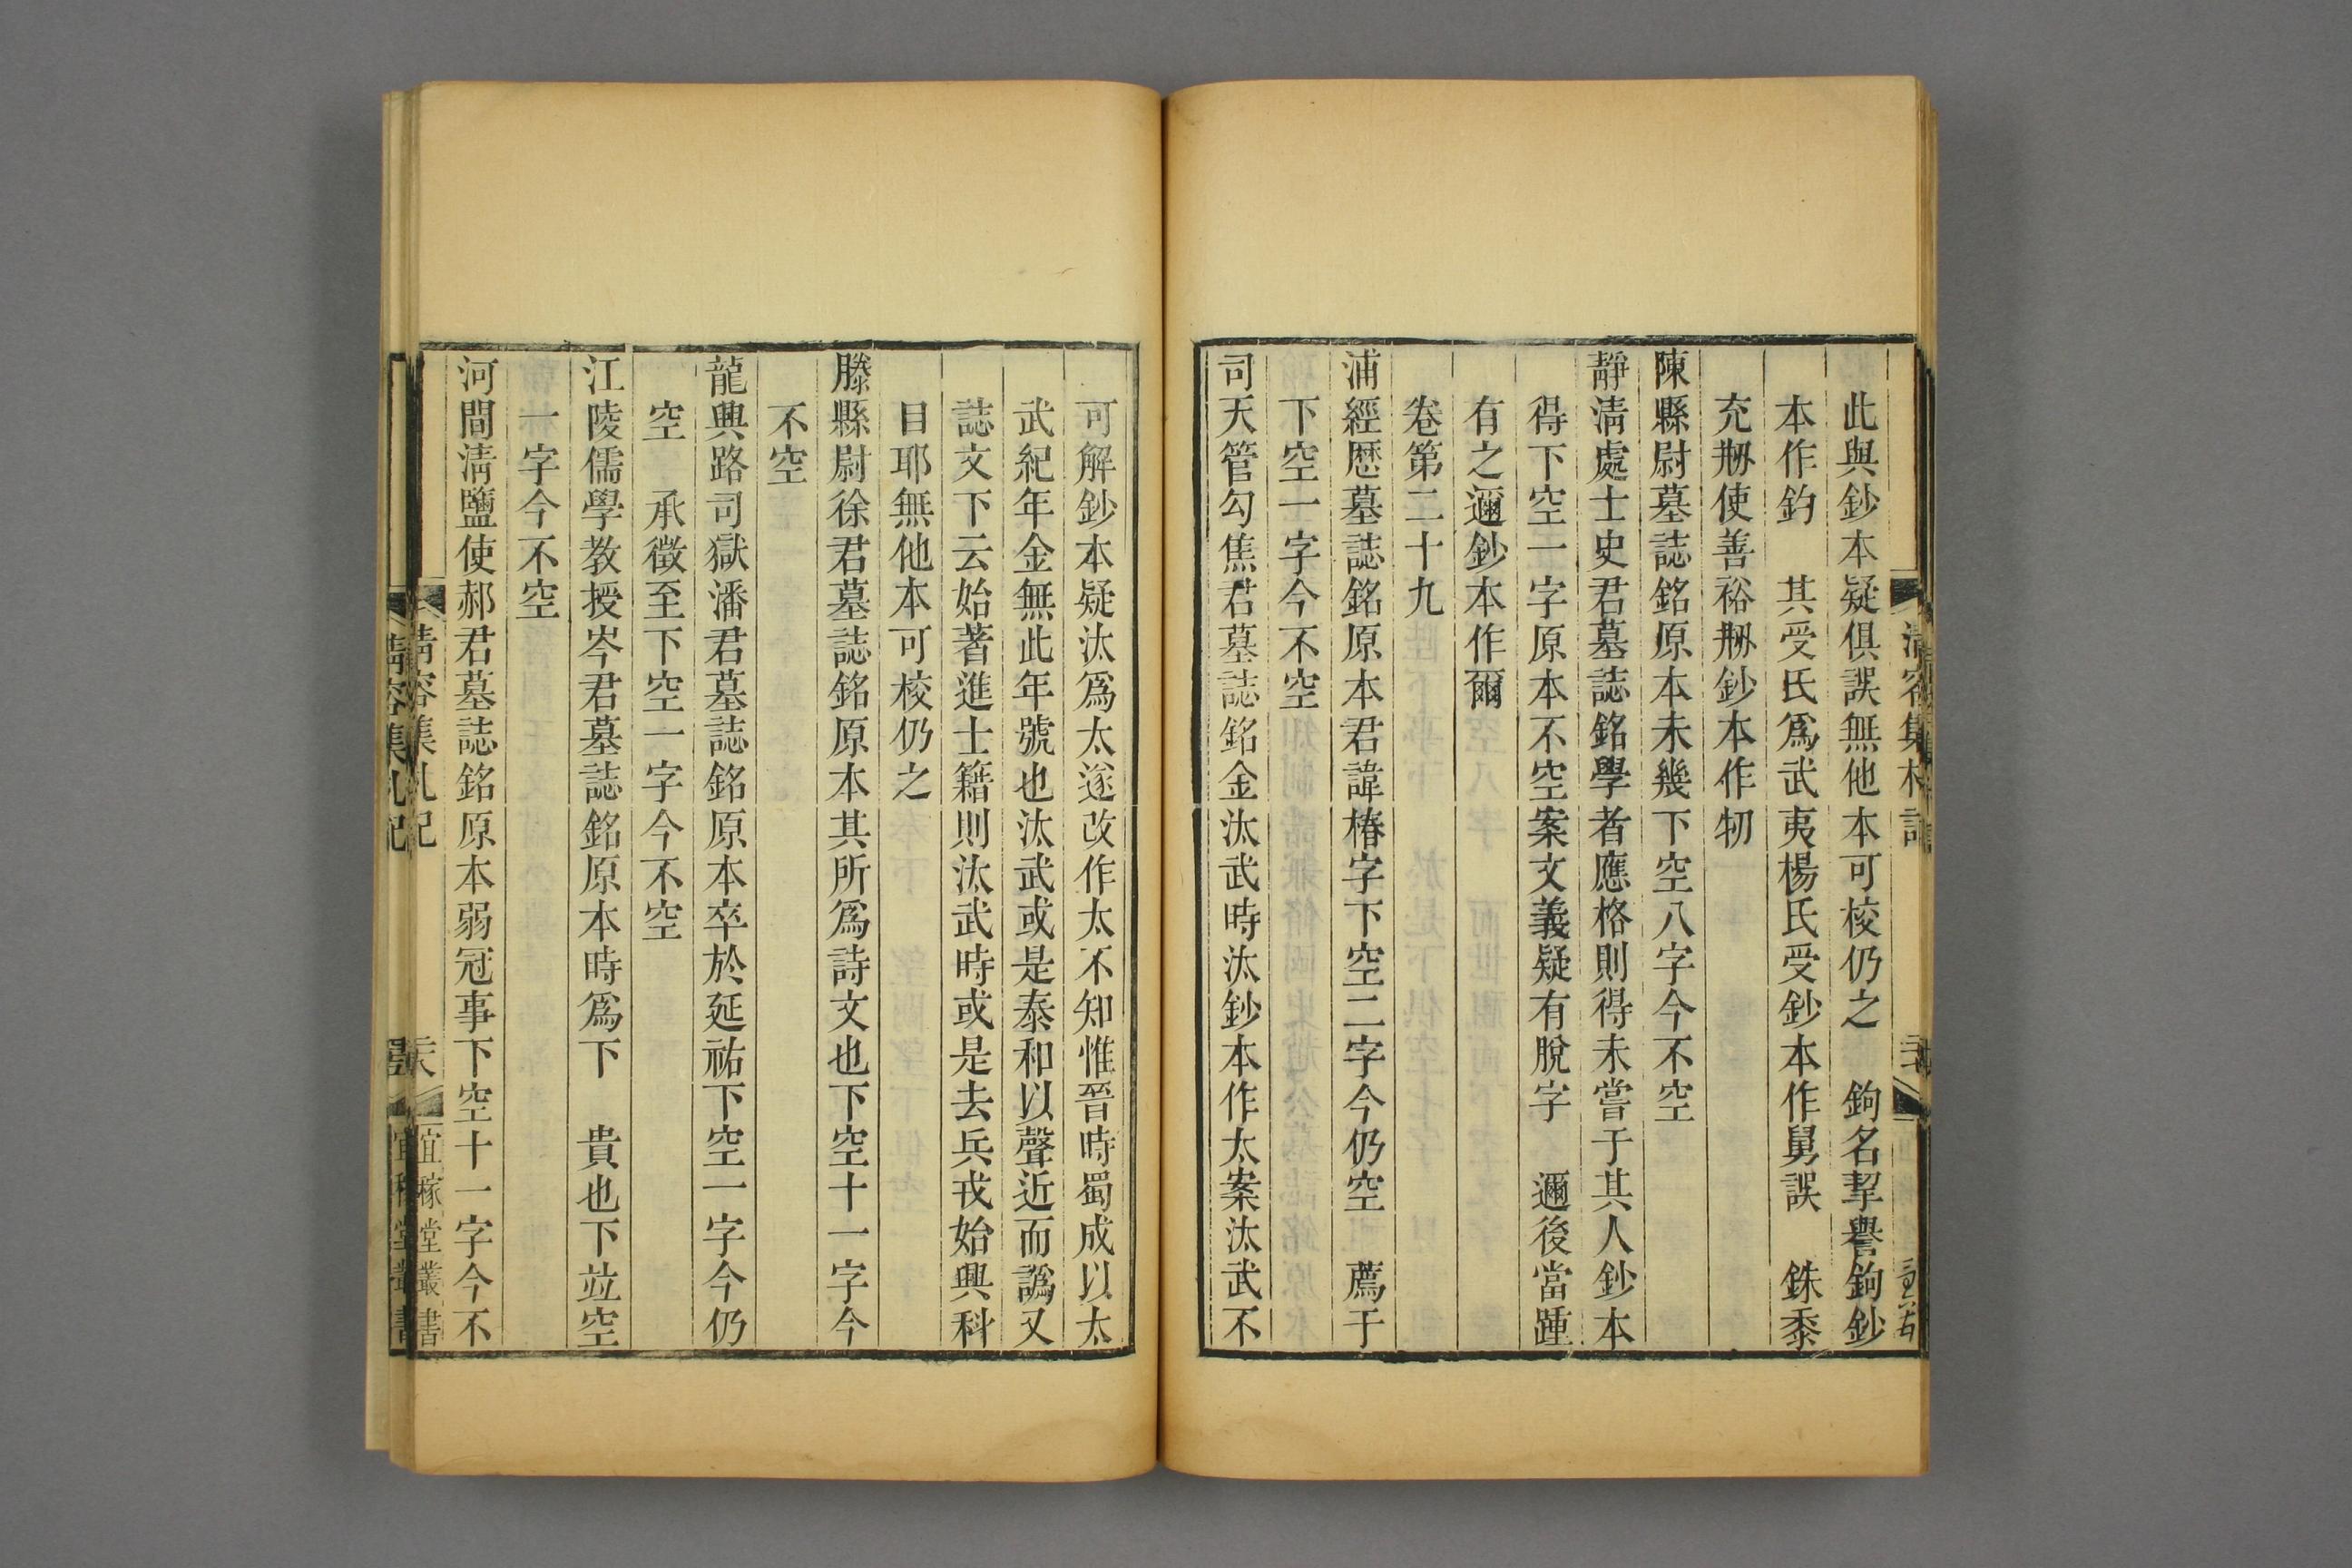 此與鈔本疑俱誤無他本可校仍之　鉤名挈譽鉤鈔
本作釣　其受氏爲武夷楊氏受鈔本作舅誤　銖黍
充刱使善裕刱鈔本作牣
陳縣尉墓誌銘原本未幾下空八字今不空
靜淸處士史君墓誌銘學者應格則得未嘗于其人鈔本
得下空一字原本不空案文義疑有脫字　邇後當踵
有之邇鈔本作爾
卷第二十九
浦經歷墓誌銘原本君諱椿字下空二字今仍空　薦于
下空一字今不空
司天管勾焦君墓誌銘金汰武時汰鈔本作太案汰武不
可解鈔本疑汰爲太遂改作太不知惟晉時蜀成以太
武紀年金無此年號也汰武或是泰和以聲近而譌又
誌文下云始著進士籍則汰武時或是去兵戎始興科
目耶無他本可校仍之
滕縣尉徐君墓誌銘原本其所爲詩文也下空十一字今
不空
龍興路司獄潘君墓誌銘原本卒於延祐下空一字今仍
空　承徵至下空一字今不空
江陵儒學教授岑君墓誌銘原本時爲下　貴也下竝空
一字今不空
河間淸鹽使郝君墓誌銘原本弱冠事下空十一字今不
淸容集札記
宜稼堂叢書